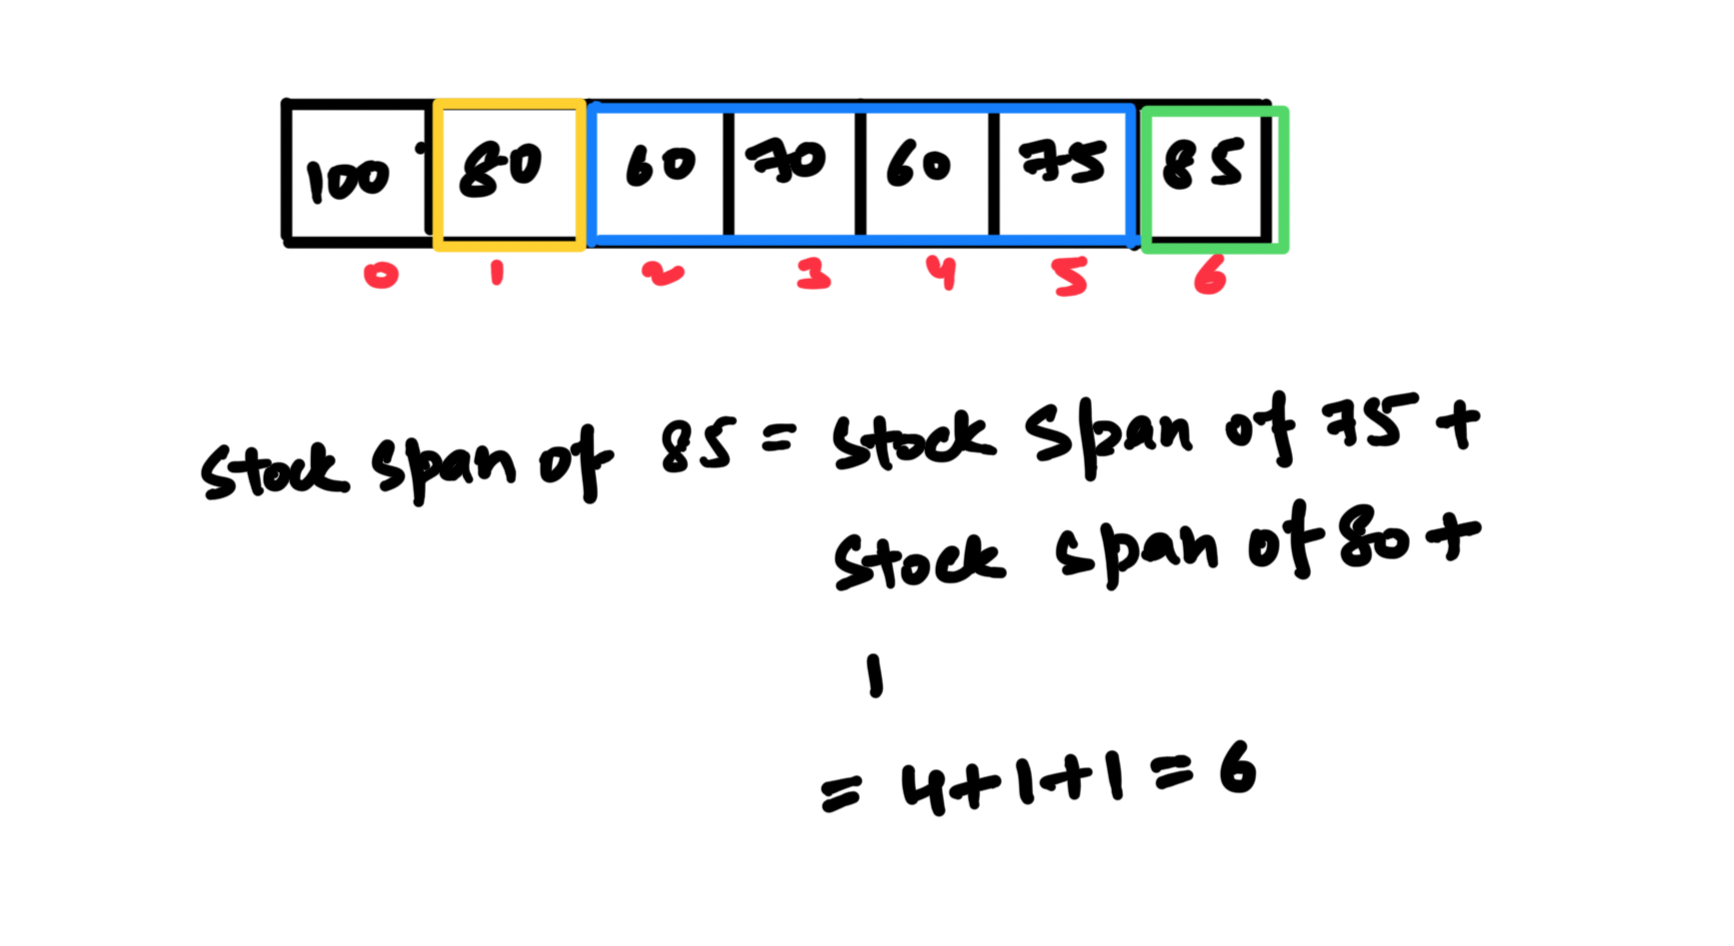 100 80 60 70 60 75 85
0 1 2 3 4 5 6
Stock span of 85 = Stock Span of 75 +
Stock span of 80 +
1
= 4+1+1 = 6